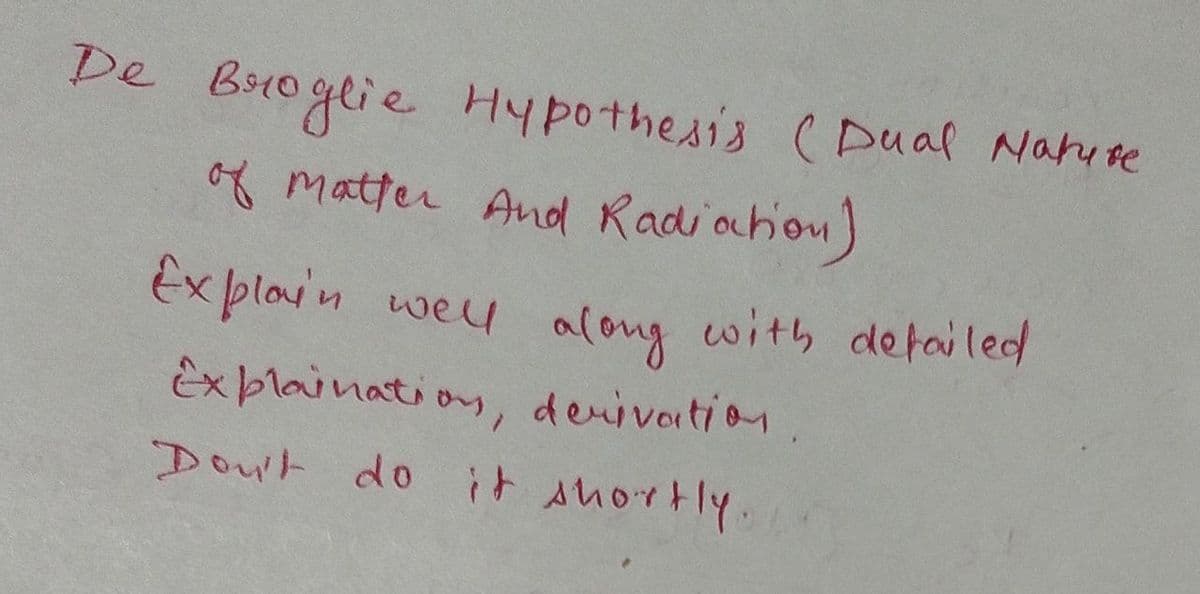 De Broglie Hypothesis (Dual Nature
of Matter And Radiation)
Explain well along with detailed
Explaination, derivation.
Don't do it shortly.